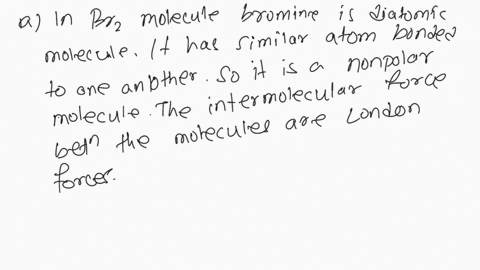 a) In Br2 molecule bromine is diatomic
molecule. It has similar atom bonded
to one another. So it is a nonpolar
molecule. The intermolecular force
betn the molecules are London
forces.